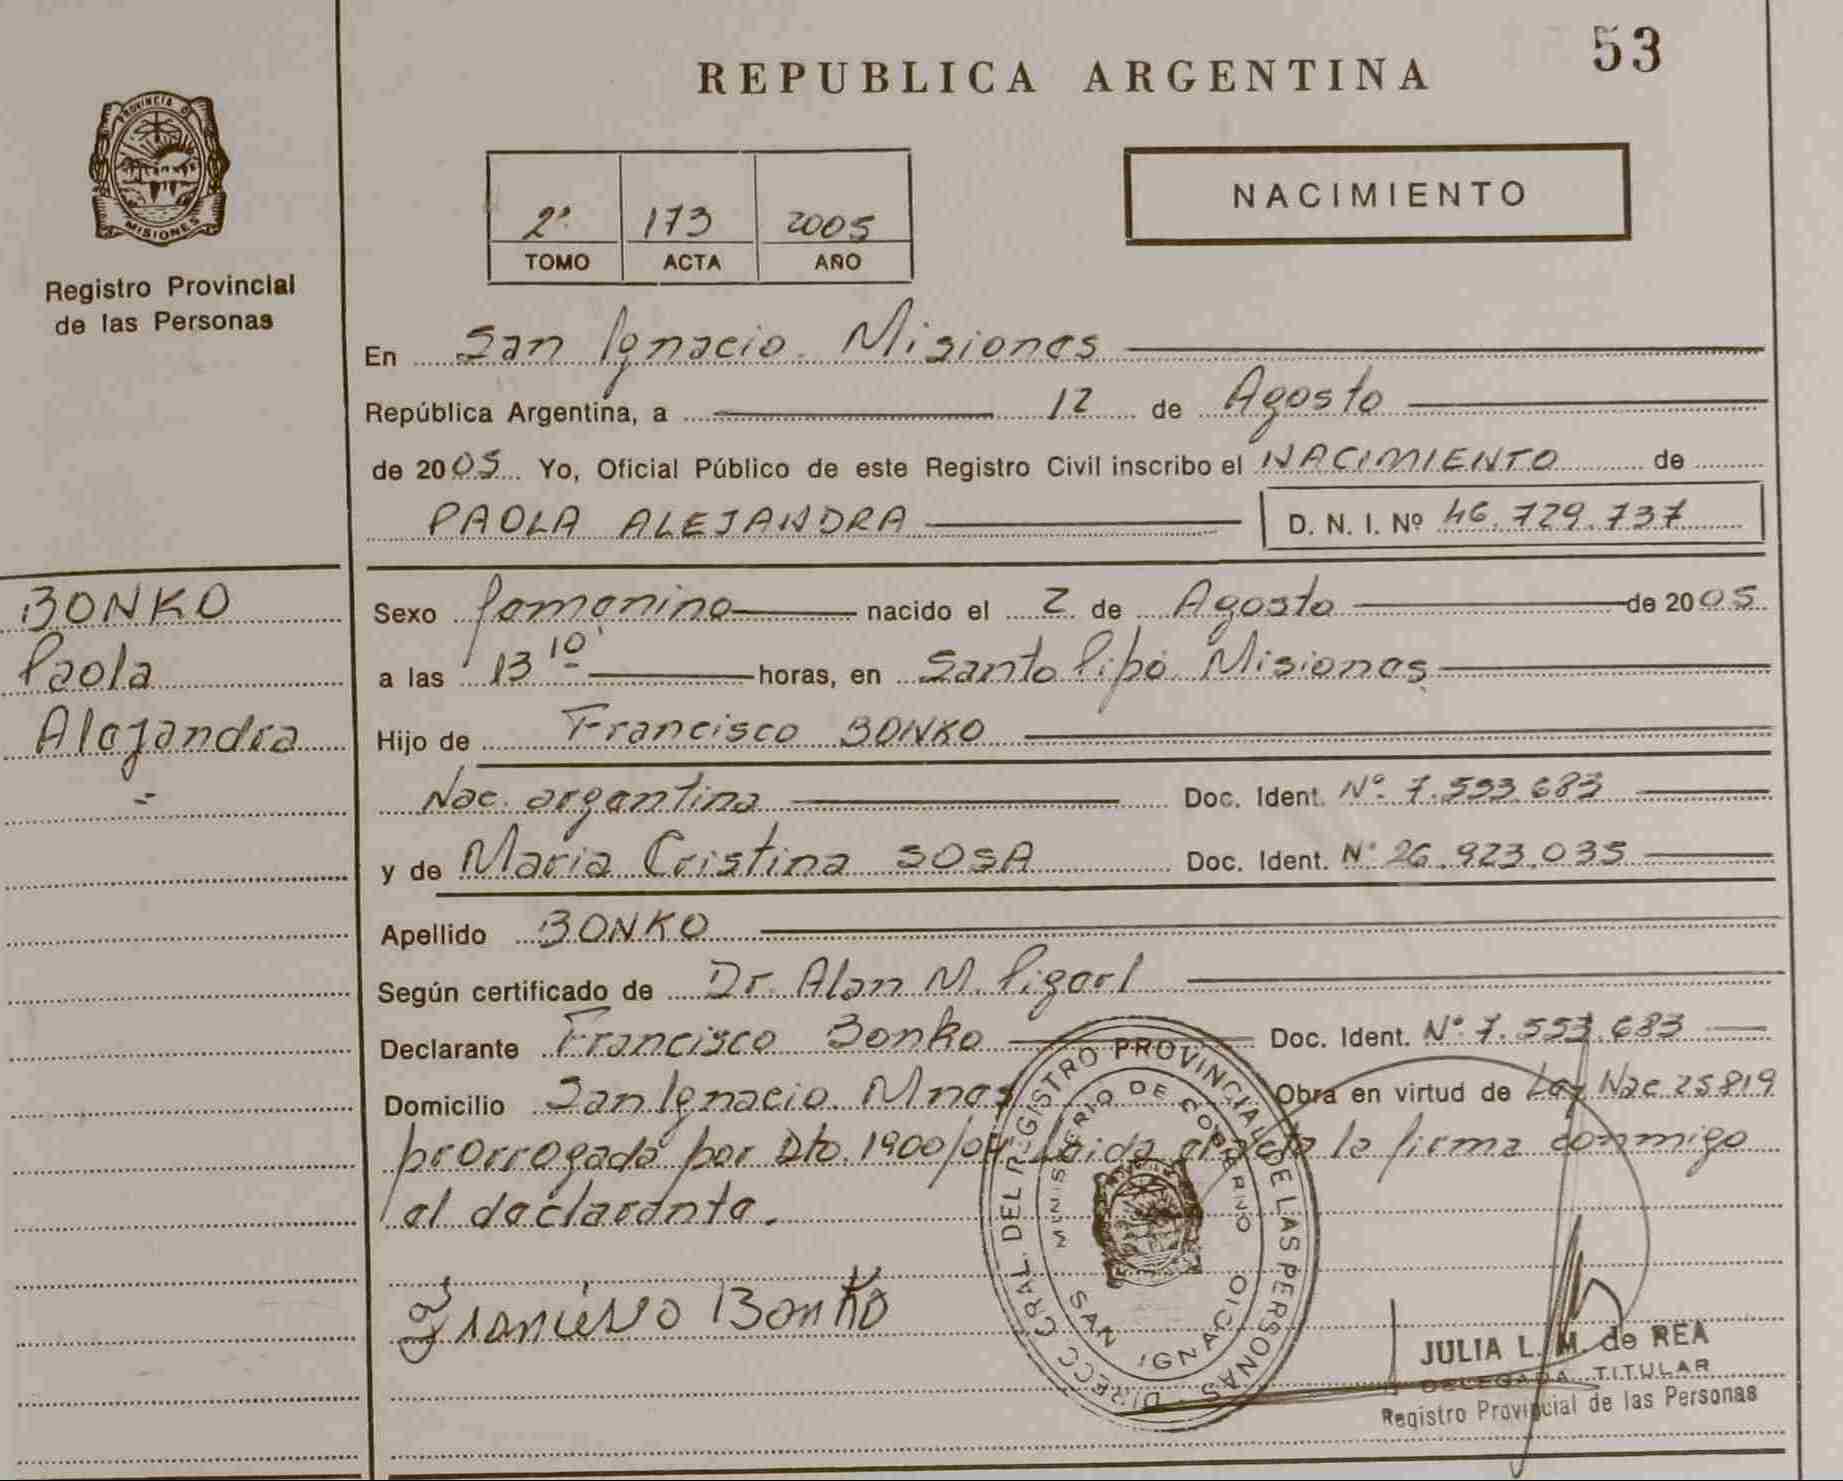 53
REPUBLICA ARGENTINA
PROVINCIA D
MISIONES
Registro Provincial
de las Personas
2º 173 2005
TOMO ACTA AÑO
NACIMIENTO
En San Ignacio. Misiones
República Argentina, a 12 de Agosto
de 2005 Yo, Oficial Público de este Registro Civil inscribo el NACIMIENTO de
PAOLA ALEJANDRA D. N. I. Nº 46.729.737
BONKO
Paola
Alejandra
Sexo femenino nacido el 2 de Agosto de 2005
a las 13 10' horas, en Santo Pipó. Misiones
Hijo de Francisco BONKO
Nac. argentina Doc. Ident. Nº 7.553.683
y de Maria Cristina SOSA Doc. Ident. Nº 26.923.035
Apellido BONKO
Según certificado de Dr. Alan M.
Declarante Francisco Bonko Doc. Ident. Nº 7.553.683
Domicilio San Ignacio. Mnes Obra en virtud de Ley Nac 25819
prorrogada por Dto. 1900/04 Leida el acta la firma conmigo
el declarante.
Francisco Bonko
DIRECC GRAL. DEL REGISTRO PROVINCIAL DE LAS PERSONAS
MINISTERIO DE GOBIERNO
SAN IGNACIO
JULIA L. M. de REA
DELEGADA TITULAR
Registro Provincial de las Personas